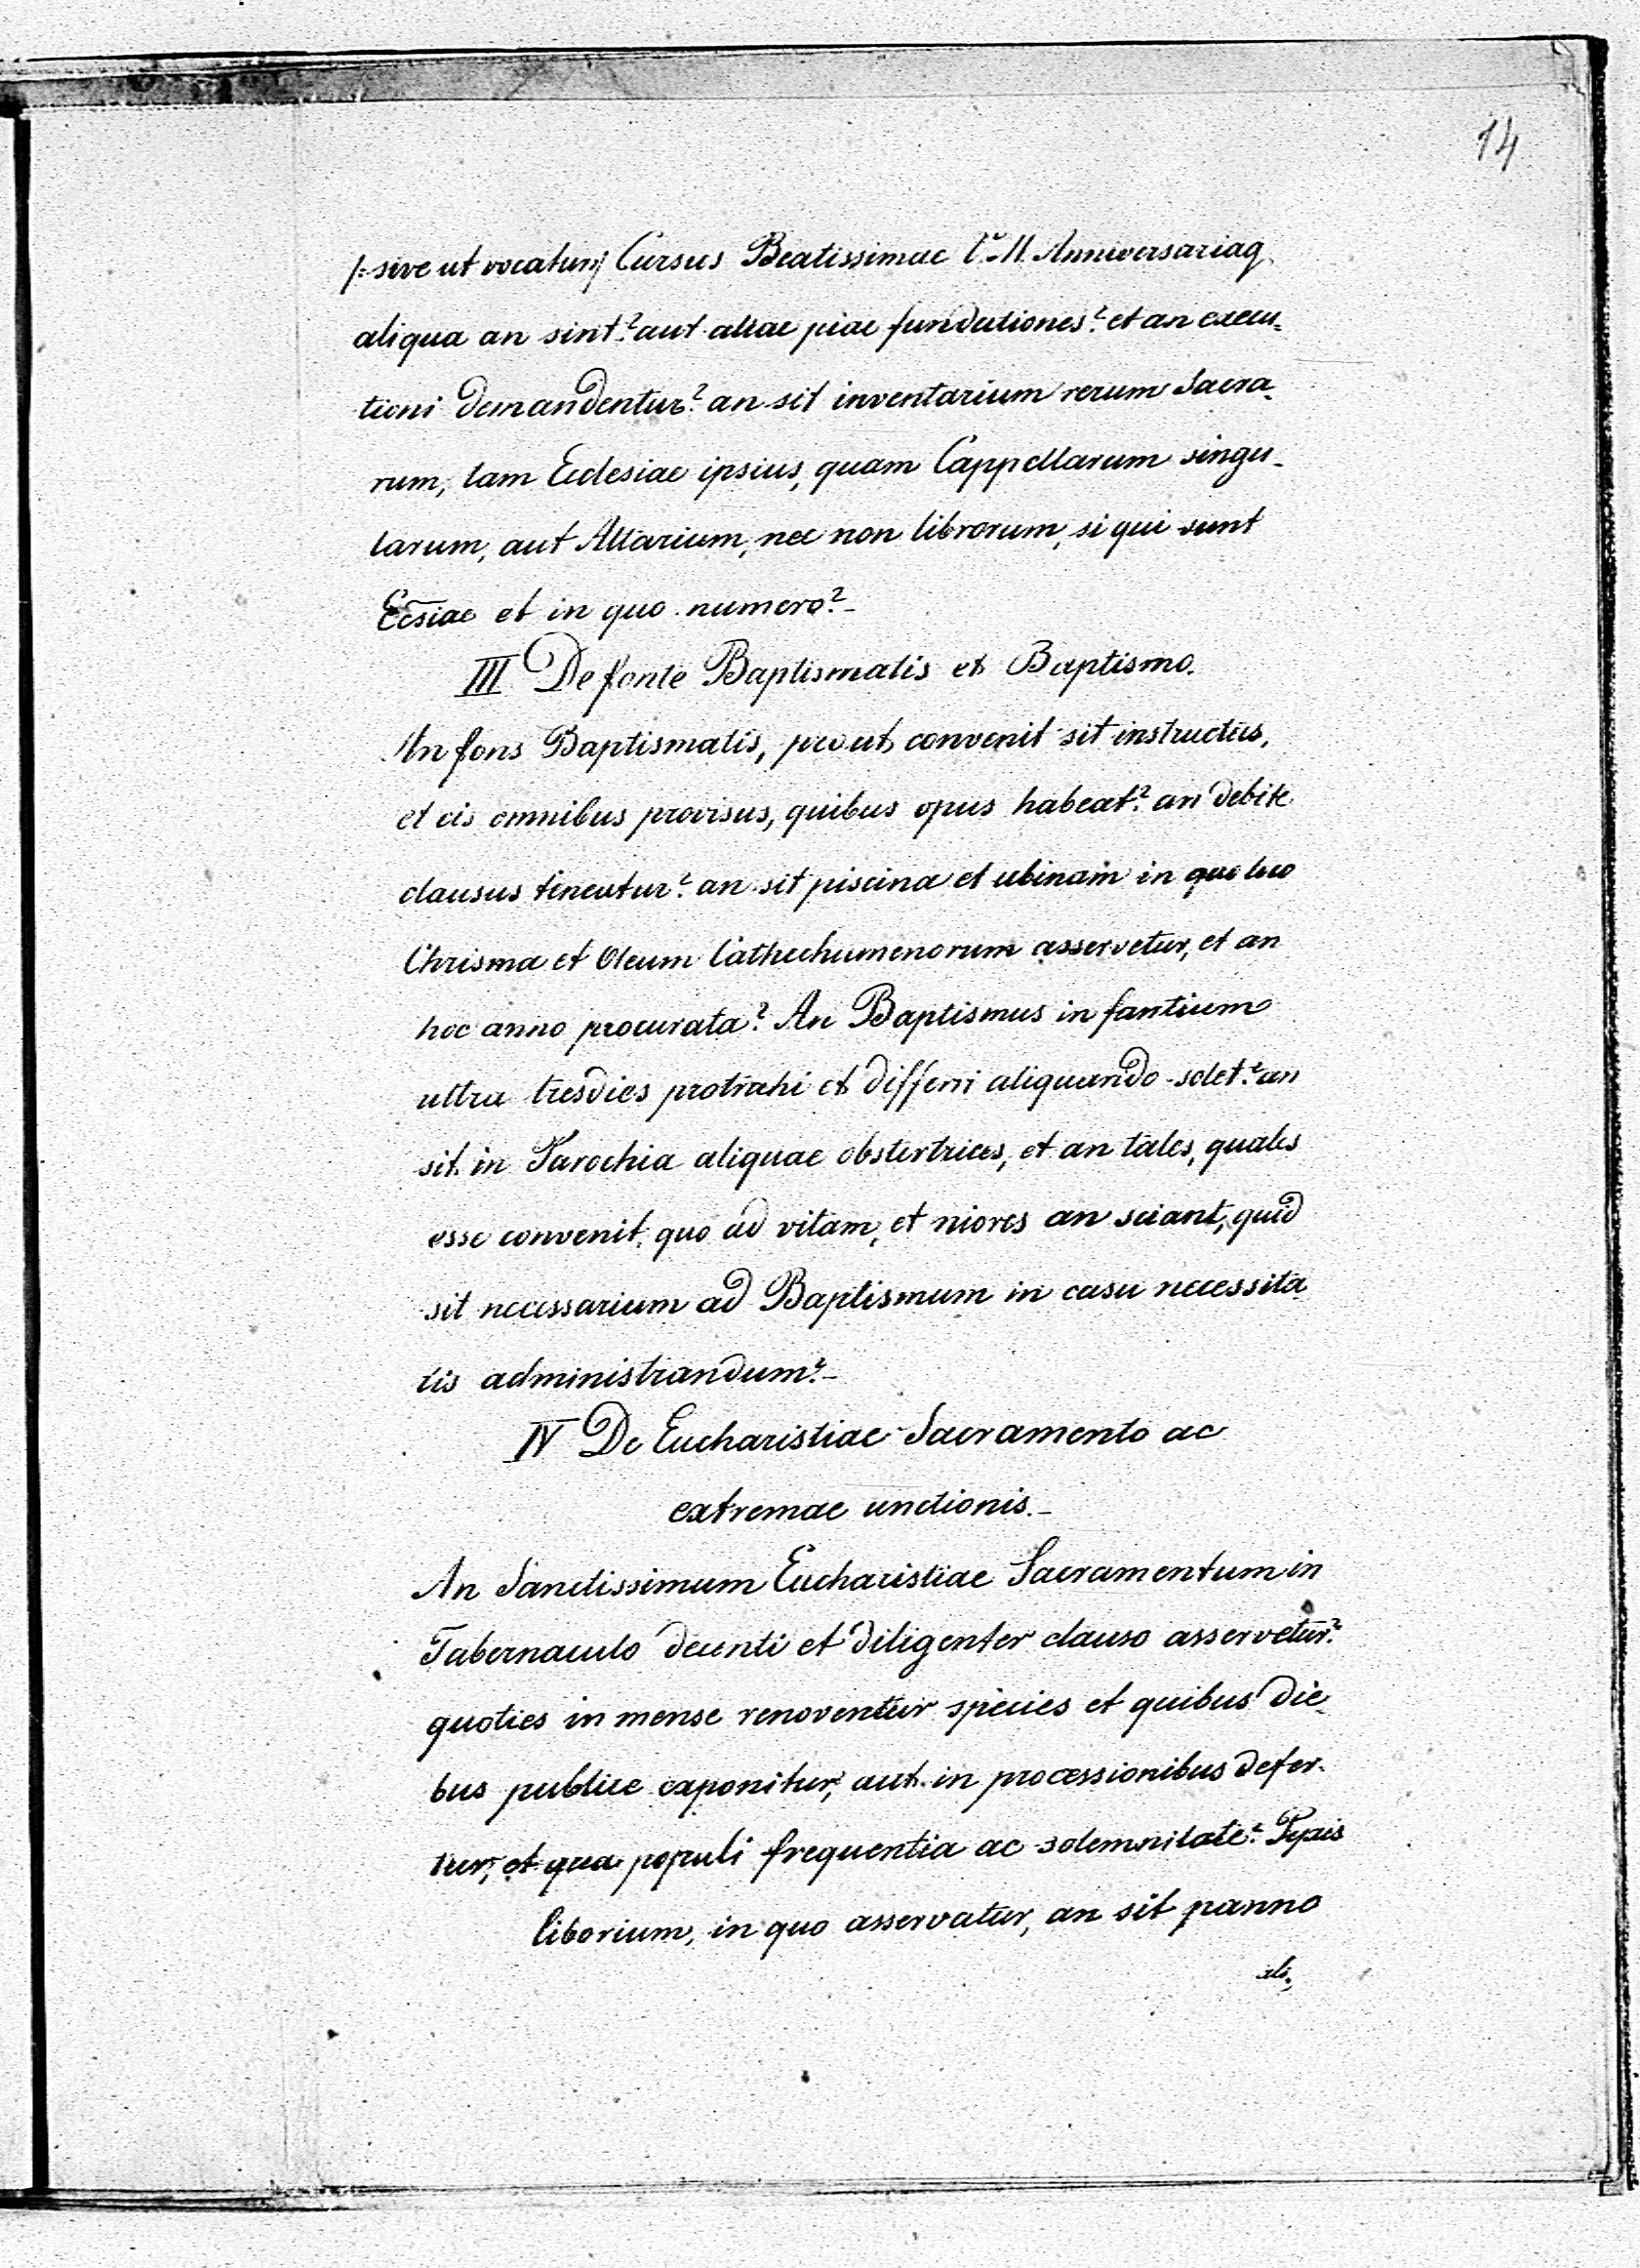 14
/: sive ut vocatur :/ Cursus Beatissimae V. M. Anniversariaq
aliqua an sint? aut aliae piae fundationes? et an execu-
tioni demandentur? an sit inventarium rerum Sacra-
rum, tam Ecclesiae ipsius, quam Cappellarum singu-
larum, aut Altarium, nec non librorum, si qui sunt
Ecsiae et in quo numero? -
III De fonte Baptismatis et Baptismo.
An fons Baptismatis, prout convenit sit instructus,
et eis omnibus provisus, quibus opus habeat? an debite
clausus teneatur? an sit piscina et ubinam in quo loco
Chrisma et Oleum Cathechumenorum asservetur, et an
hoc anno procurata? An Baptismus infantium
ultra tresdies protrahi et differri aliquando solet? an
sit in Parochia aliquae obstertrices, et an tales, quales
esse convenit, quo ad vitam, et mores an sciant, quid
sit necessarium ad Baptismum in casu necessita
tis administrandum? -
IV De Eucharistiae Sacramento ac
extremae unctionis. -
An Sanctissimum Eucharistiae Sacramentum in
Tabernaculo decenti et diligenter clauso asservetur?
quoties in mense renoventur species et quibus die-
bus publice exponitur, aut in processionibus defer-
tur, et qua populi frequentia ac solemnitate? Pyxis
liborium, in quo asservatur, an sit panno